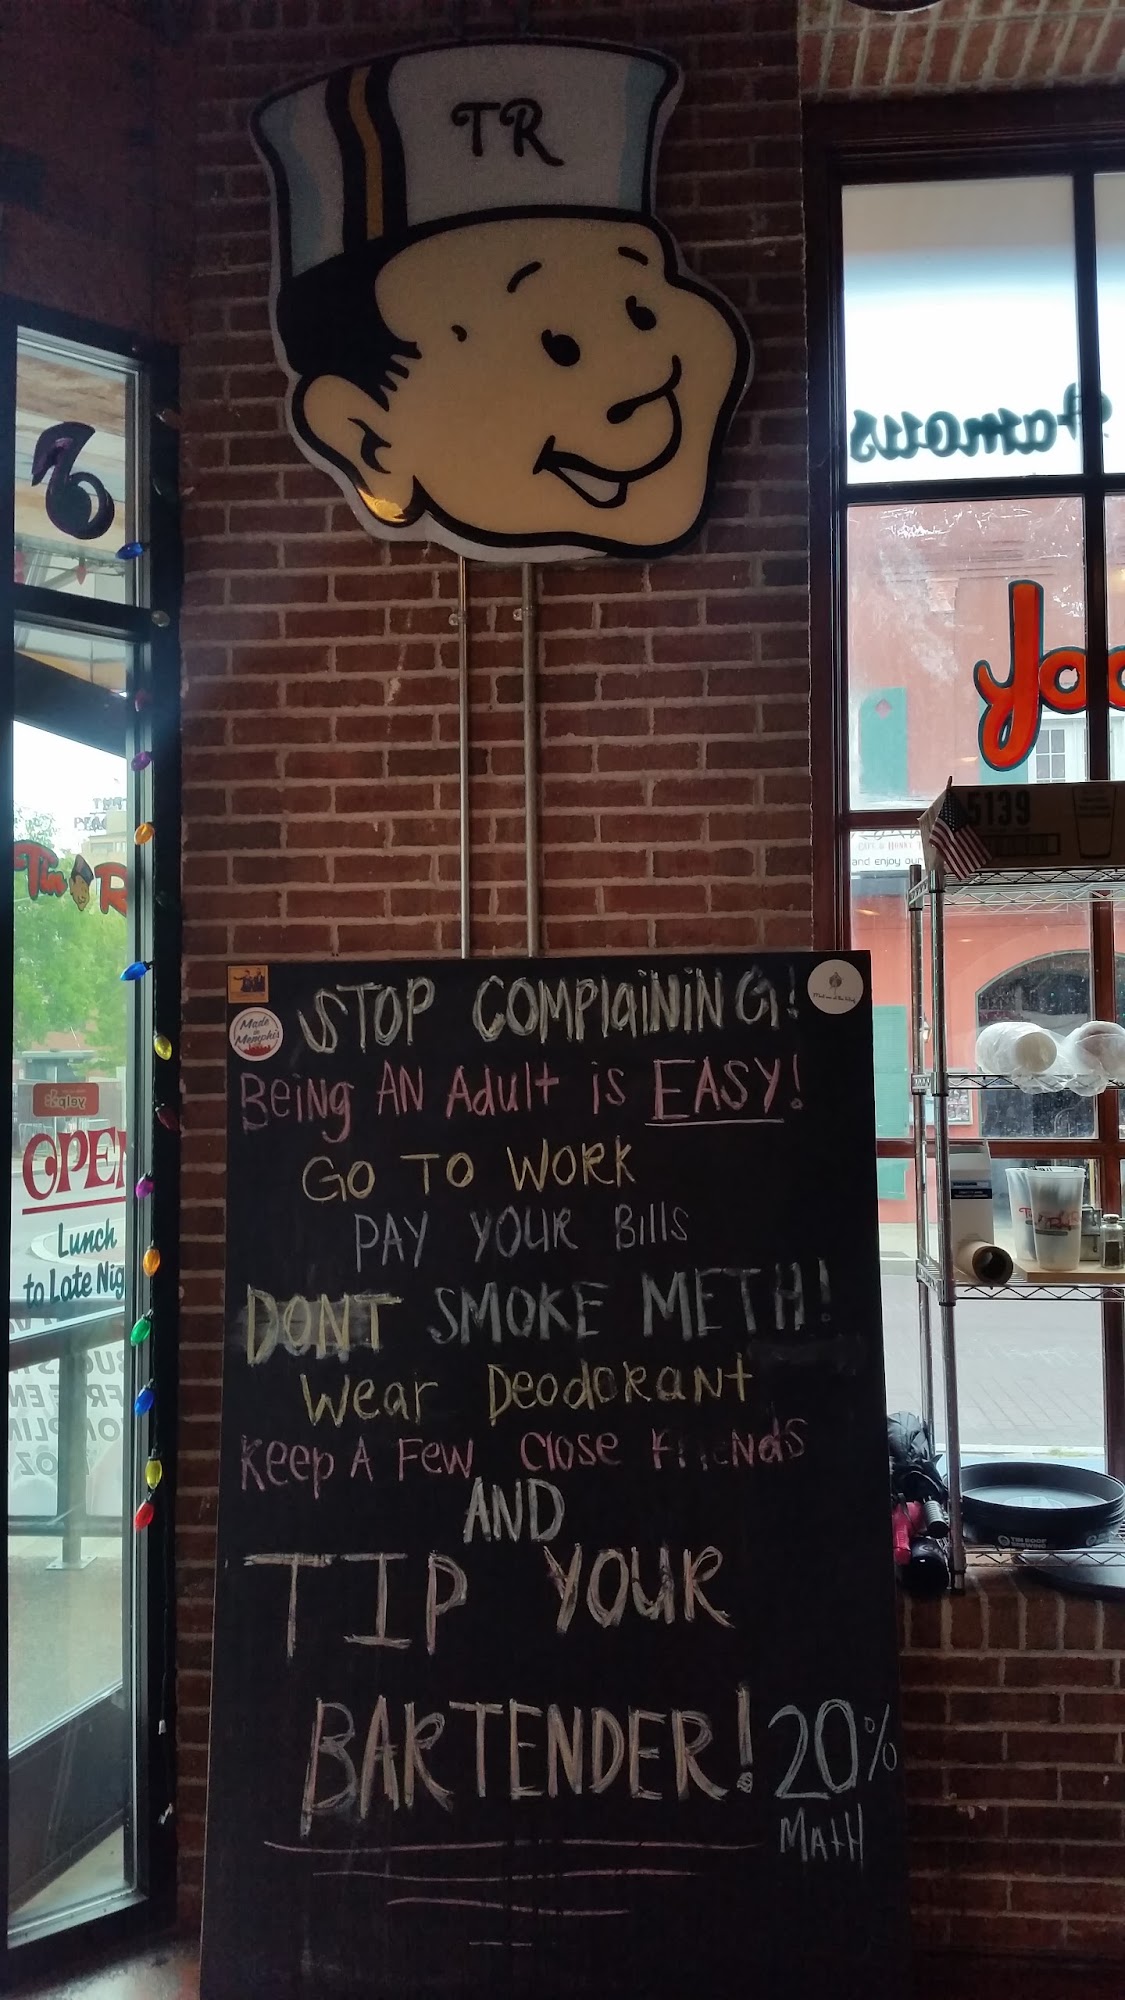 TR
Famous
Joo
Tin R
5139
and enjoy our
STOP COMPLAINING!
Made in Memphis
BEING AN AdulT is EASY!
GO TO WORK
PAY YOUR Bills
DONT SMOKE METH!
Wear DeodoRanT
Keep A Few Close Friends
AND
TIP YOUR
BARTENDER! 20%
MATH
yelp
OPEN
Lunch
to Late Nig
TIN ROOF
BREWING